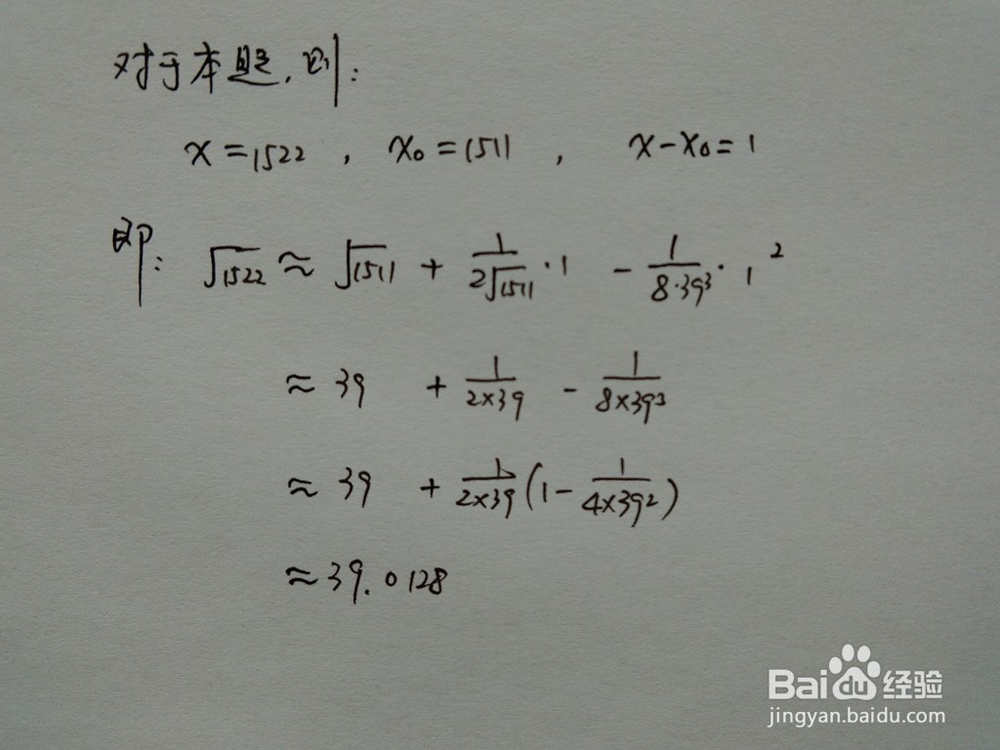 对于本题，则：
x = 1522 ， x₀ = 1511 ， x - x₀ = 1
即：√1522 ≈ √1511 + 1/(2√1511) · 1 - 1/(8·39³) · 1²
≈ 39 + 1/(2×39) - 1/(8×39³)
≈ 39 + 1/(2×39) (1 - 1/(4×39²))
≈ 39.0128
Baidu经验
jingyan.baidu.com